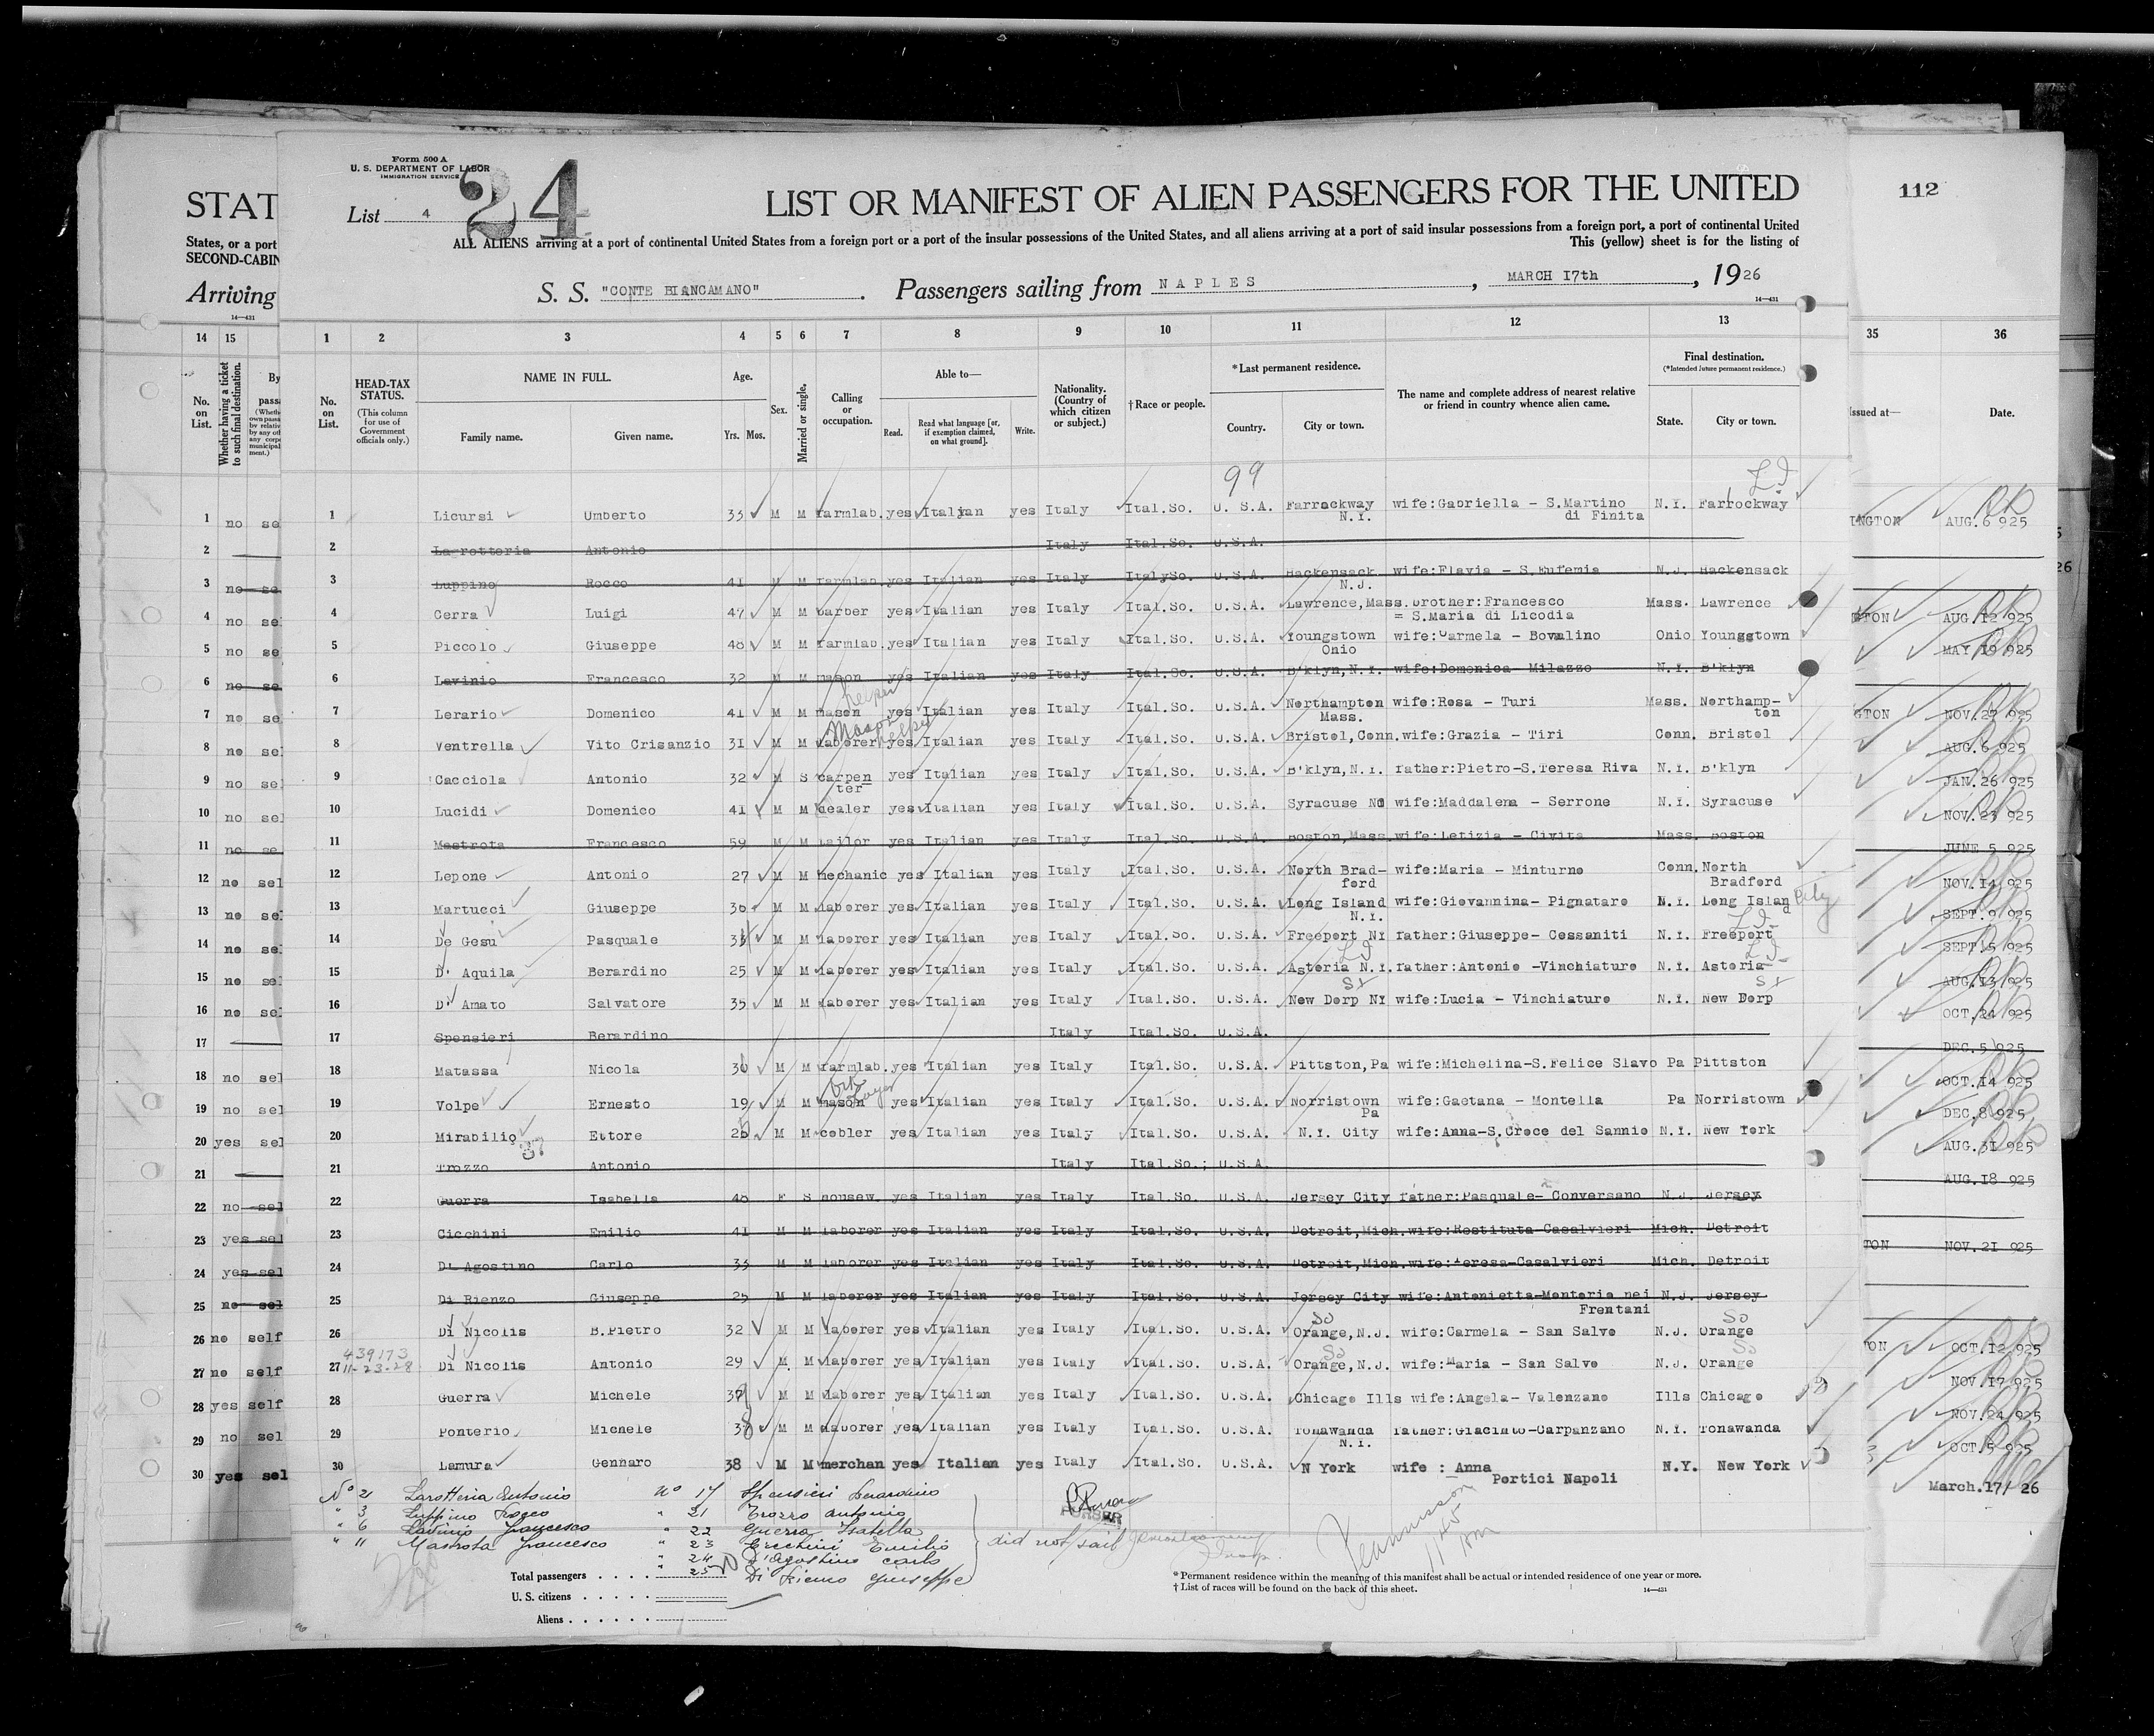 Form 500 A
U. S. DEPARTMENT OF LABOR
IMMIGRATION SERVICE
24
List 4
LIST OR MANIFEST OF ALIEN PASSENGERS FOR THE UNITED
ALL ALIENS arriving at a port of continental United States from a foreign port or a port of the insular possessions of the United States, and all aliens arriving at a port of said insular possessions from a foreign port, a port of continental United
This (yellow) sheet is for the listing of
S. S. "CONTE BIANCAMANO". Passengers sailing from NAPLES, MARCH 17th, 1926
14—431
STAT
States, or a port
SECOND-CABIN
Arriving
14—431
112
14 15 1 2 3 4 5 6 7 8 9 10 11 12 13 35 36
No. on List.
Whether having a ticket to such final destination.
By
No. on List.
HEAD-TAX STATUS.
(This column for use of Government officials only.)
NAME IN FULL.
Family name. Given name.
Age.
Yrs. Mos.
Sex.
Married or single.
Calling or occupation.
Able to—
Read. Read what language [or, if exemption claimed, on what ground]. Write.
Nationality. (Country of which citizen or subject.)
†Race or people.
*Last permanent residence.
Country. City or town.
The name and complete address of nearest relative or friend in country whence alien came.
Final destination.
(*Intended future permanent residence.)
State. City or town.
Issued at—
Date.
99
1 no se 1 Licursi Umberto 35 M M farmlab. yes Italian yes Italy Ital.So. U. S.A. Farrockway N.Y. wife:Gabriella - S.Martino di Finita N.Y. Farrockway INGTON AUG. 6 925
2 2 Lagrotteria Antonio Italy Ital.So. U.S.A.
3 no se 3 Luppino Rocco 41 M M farmlab yes Italian yes Italy ItalySo. U.S.A. Hackensack N.J. wife:Flavia - S.Eufemia N.J. Hackensack
4 no sel 4 Cerra Luigi 47 M M barber yes Italian yes Italy Ital.So. U.S.A. Lawrence,Mass. brother:Francesco = S.Maria di Licodia Mass. Lawrence GTON AUG. 12 925
5 no se 5 Piccolo Giuseppe 48 M M farmlab. yes Italian yes Italy Ital.So. U.S.A. Youngstown Ohio wife:Carmela - Bovalino Ohio Youngstown MAY 19 925
6 no se 6 Lavinio Francesco 32 M M mason yes Italian yes Italy Ital.So. U.S.A. B'klyn,N.Y. wife:Domenica Milazzo N.Y. B'klyn
7 no se 7 Lerario Domenico 41 M M mason helper yes Italian yes Italy Ital.So. U.S.A. Northampton Mass. wife:Rosa - Turi Mass. Northampton GTON NOV. 27 925
8 no se 8 Ventrella Vito Crisanzio 31 M M laborer Mason helper yes Italian yes Italy Ital.So. U.S.A. Bristol,Conn. wife:Grazia - Tiri Conn. Bristol AUG. 6 925
9 no sel 9 Cacciola Antonio 32 M S carpen ter yes Italian yes Italy Ital.So. U.S.A. B'klyn,N.Y. father:Pietro-S.Teresa Riva N.Y. B'klyn JAN. 26 925
10 no sel 10 Lucidi Domenico 41 M M dealer yes Italian yes Italy Ital.So. U.S.A. Syracuse wife:Maddalena - Serrone N.Y. Syracuse NOV. 23 925
11 no se 11 Mastrota Francesco 59 M M tailor yes Italian yes Italy Ital.So. U.S.A. Boston,Mass. wife:Letizia - Civita Mass. Boston JUNE 5 925
12 no sel 12 Lepone Antonio 27 M M mechanic yes Italian yes Italy Ital.So. U.S.A. North Bradford wife:Maria - Minturno Conn. North Bradford NOV. 14 925
13 no sel 13 Martucci Giuseppe 36 M M laborer yes Italian yes Italy Ital.So. U.S.A. Long Island N.Y. wife:Giovannina- Pignataro N.Y. Long Island City SEPT. 9 925
14 no sel 14 De Gesu Pasquale M M laborer yes Italian yes Italy Ital.So. U.S.A. Freeport NY father:Giuseppe- Cessaniti N.Y. Freeport SEPT. 5 925
15 no sel 15 D' Aquila Berardino 25 M M laborer yes Italian yes Italy Ital.So. U.S.A. Astoria N.Y. father:Antonio -Vinchiature N.Y. Astoria AUG. 13 925
16 no sel 16 D' Amato Salvatore 35 M M laborer yes Italian yes Italy Ital.So. U.S.A. New Dorp NY wife:Lucia - Vinchiature N.Y. New Dorp OCT. 24 925
17 17 Spensieri Berardino Italy Ital.So. U.S.A. DEC. 5 925
18 no sel 18 Matassa Nicola 36 M M farmlab. yes Italian yes Italy Ital.So. U.S.A. Pittston,Pa wife:Michelina-S.Felice Slavo Pa Pittston OCT. 14 925
19 no sel 19 Volpe Ernesto 19 M M mason yes Italian yes Italy Ital.So. U.S.A. Norristown Pa wife:Gaetana - Montella Pa Norristown DEC. 8 925
20 yes sel 20 Mirabilio Ettore M M cobler yes Italian yes Italy Ital.So. U.S.A. N.Y. City wife:Anna-S.Croce del Sannio N.Y. New York AUG. 31 925
21 21 Trozzo Antonio Italy Ital.So.; U.S.A. AUG. 18 925
22 no sel 22 Guerra Isabella 48 F S housew. yes Italian yes Italy Ital.So. U.S.A. Jersey City father:Pasquale- Conversano N.J. Jersey
23 yes sel 23 Cicchini Emilio 41 M M laborer yes Italian yes Italy Ital.So. U.S.A. Detroit,Mich. wife:Restituta Casalvieri Mich. Detroit TON NOV. 21 925
24 yes sel 24 D' Agostino Carlo 33 M M laborer yes Italian yes Italy Ital.So. U.S.A. Detroit,Mich. wife:Teresa-Casalvieri Mich. Detroit
25 no sel 25 Di Rienzo Giuseppe 25 M M laborer yes Italian yes Italy Ital.So. U.S.A. Jersey City wife:Antonietta-Monteria nei Frentani N.J. Jersey
26 no self 26 Di Nicolis B.Pietro 32 M M laborer yes Italian yes Italy Ital.So. U.S.A. Orange,N.J. wife:Carmela - San Salvo N.J. Orange TON OCT. 12 925
439173
11-23-28
27 no self 27 Di Nicolis Antonio 29 M M laborer yes Italian yes Italy Ital.So. U.S.A. Orange,N.J. wife:Maria - San Salvo N.J. Orange NOV. 17 925
28 yes self 28 Guerra Michele M M laborer yes Italian yes Italy Ital.So. U.S.A. Chicago Ills wife:Angela- Valenzano Ills Chicago NOV. 24 925
29 no sel 29 Ponterio Michele 38 M M laborer yes Italian yes Italy Ital.So. U.S.A. Tonawanda N.Y. father:Giacinto-Carpanzano N.Y. Tonawanda OCT. 5 925
30 yes sel 30 Lamura Gennaro 38 M M merchan yes Italian yes Italy Ital.So. U.S.A. N York wife : Anna Portici Napoli N.Y. New York March.17/ 26
No 2 Larotteria Antonio No 17 Spensieri Berardino
" 3 Luppino Rocco " 21 Trozzo Antonio
" 6 Lavinio Francesco " 22 Guerra Isabella
" 11 Mastrota Francesco " 23 Cicchini Emilio
" 24 D'Agostino Carlo
" 25 Di Rienzo Giuseppe
did not sail
PURSER
Total passengers
U. S. citizens
Aliens
*Permanent residence within the meaning of this manifest shall be actual or intended residence of one year or more.
†List of races will be found on the back of this sheet.
14—431